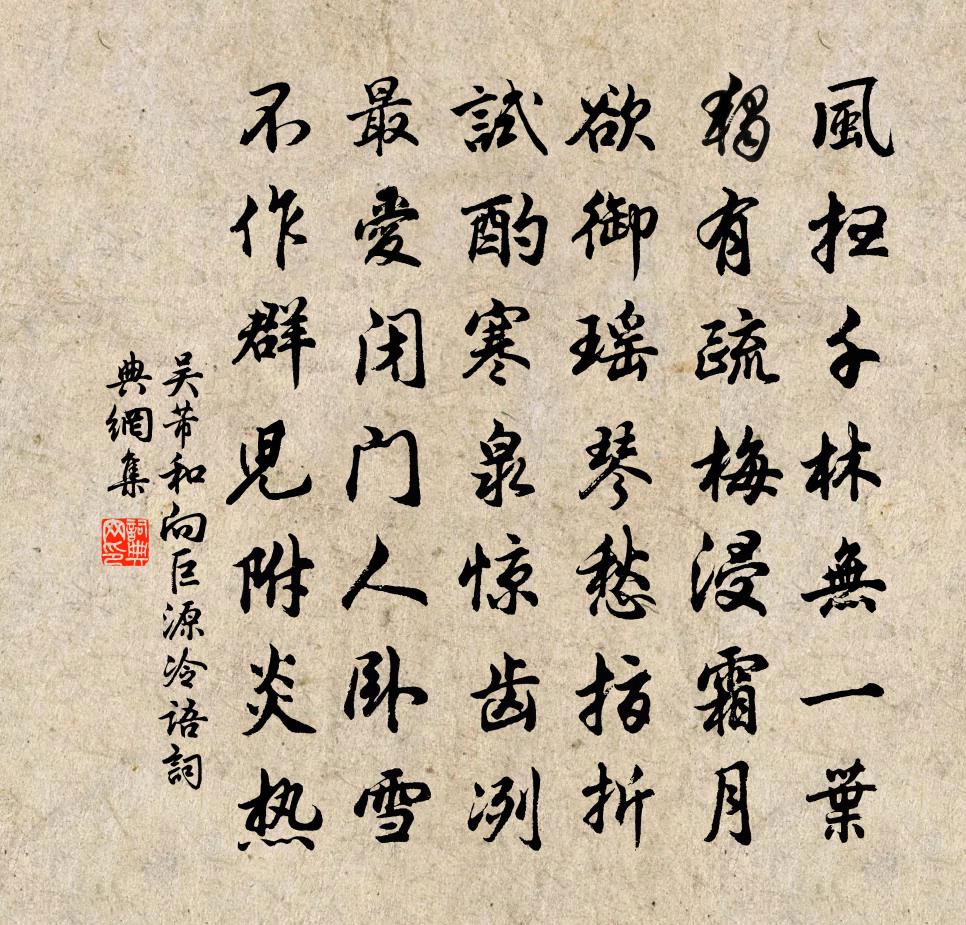 風扫千林無一葉
獨有疏梅浸霜月
欲御瑶琴愁指折
試酌寒泉惊齿冽
最愛闭门人卧雪
不作群児附炎热
吴芾和向巨源冷語詞
典網集
詞典
网印